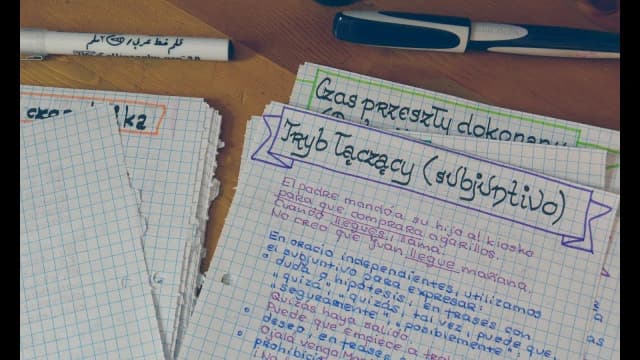 قلم خط عربي
Czas przeszły dokonany
Tryb łączący (subjuntivo)
El padre mandó a su hijo al kiosko
para que comprara cigarillos.
Cuando llegues, llama.
No creo que Juan llegue mañana.
En oracio independientes, utilizamos
el subjuntivo para expresar:
duda o hipótesis, en frases con
"quizá", "quizás, tal vez, puede que
"seguramente" "posiblemente"
Quizás haya salido.
Puede que empiece a
deseo, en frases
Ojalá venga
prohibici